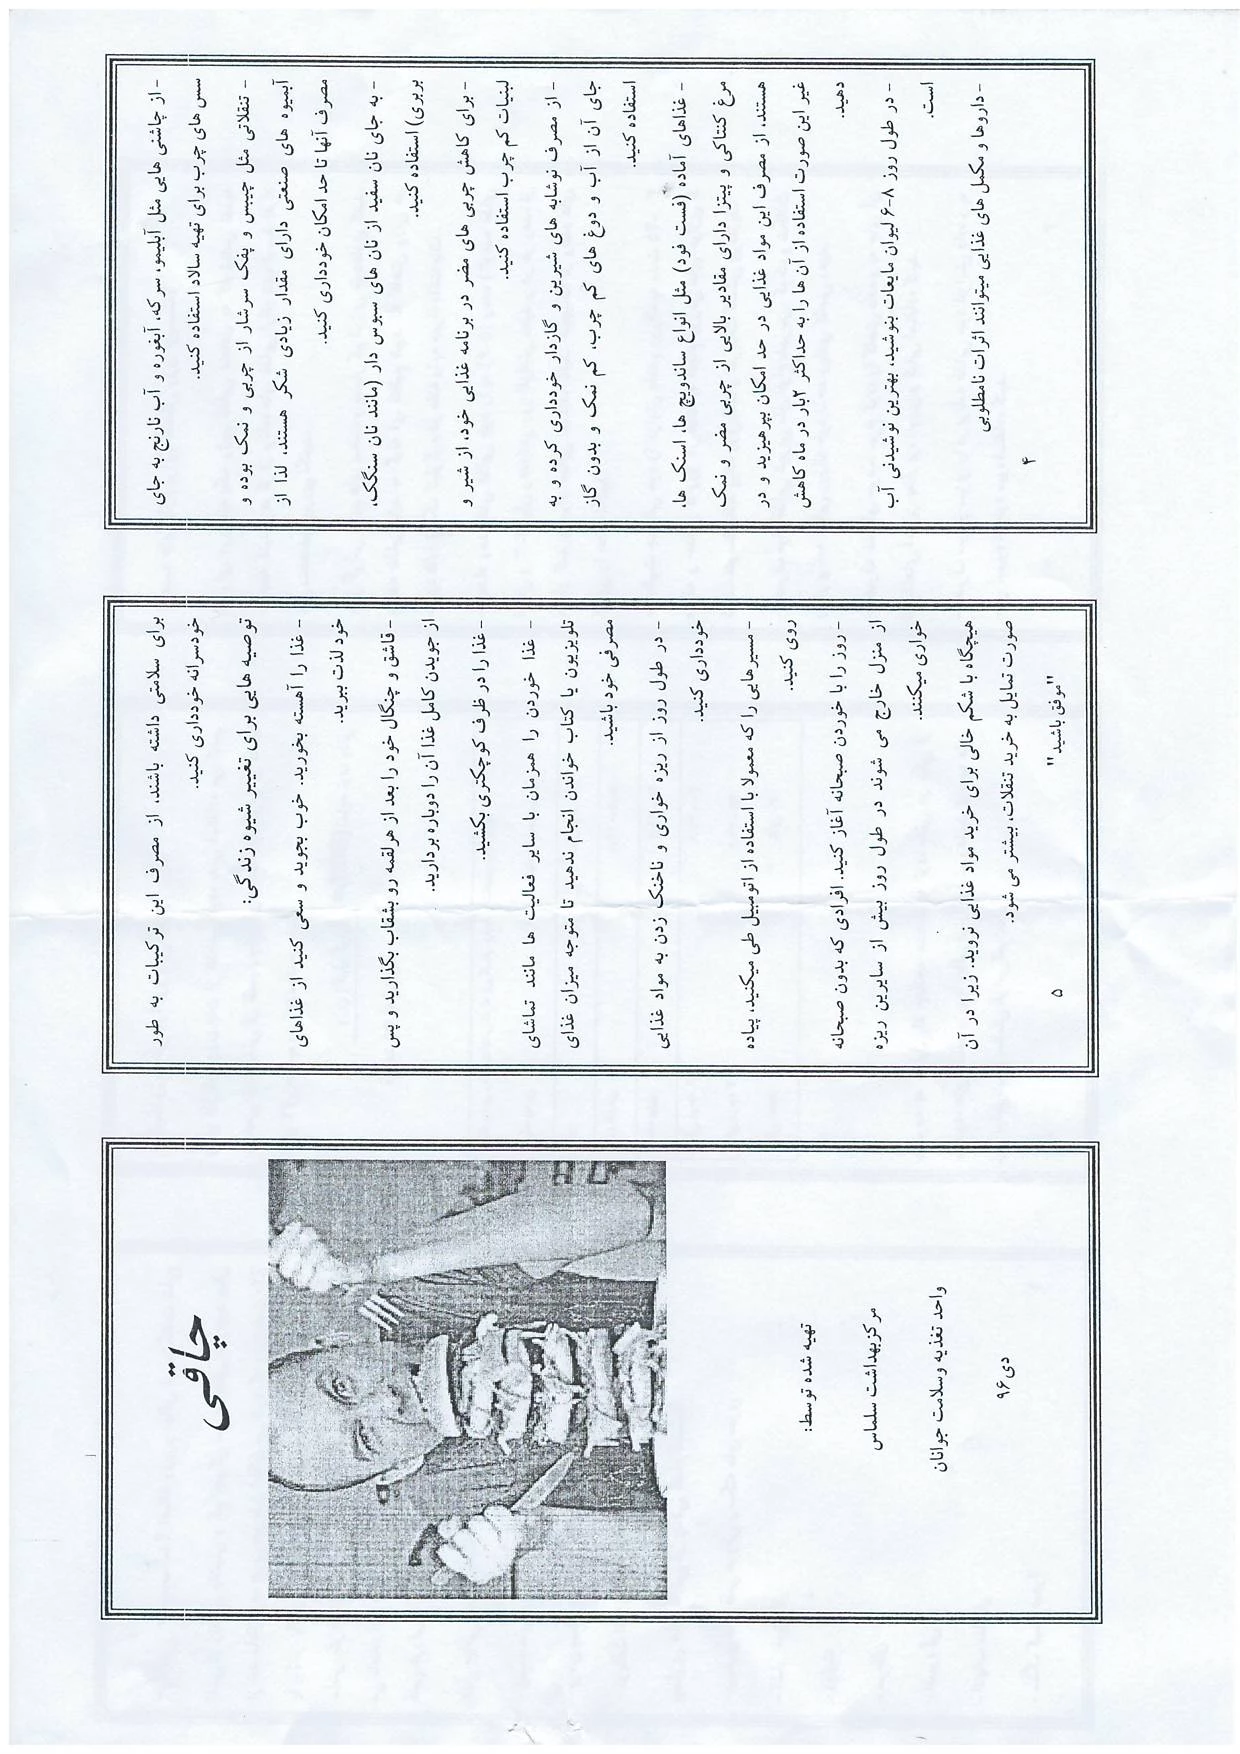 چاقی
تهیه شده توسط:
مرکزبهداشت سلماس
واحد تغذیه وسلامت جوانان
دی ۹۶
- از چاشنی هایی مثل آبلیمو، سرکه، آبغوره و آب نارنج به جای
سس های چرب برای تهیه سالاد استفاده کنید.
- تنقلاتی مثل چیپس و پفک سرشار از چربی و نمک بوده و
آبمیوه های صنعتی دارای مقدار زیادی شکر هستند، لذا از
مصرف آنها تا حد امکان خودداری کنید.
- به جای نان سفید از نان های سبوس دار (مانند نان سنگک،
بربری) استفاده کنید.
- برای کاهش چربی های مضر در برنامه غذایی خود، از شیر و
لبنیات کم چرب استفاده کنید.
- از مصرف نوشابه های شیرین و گازدار خودداری کرده و به
جای آن از آب و دوغ های کم چرب، کم نمک و بدون گاز
استفاده کنید.
- غذاهای آماده (فست فود) مثل انواع ساندویچ ها، اسنک ها،
مرغ کنتاکی و پیتزا دارای مقادیر بالایی از چربی مضر و نمک
هستند، از مصرف این مواد غذایی در حد امکان بپرهیزید و در
غیر این صورت استفاده از آن ها را به حداکثر ۲بار در ماه کاهش
دهید.
- در طول روز ۸-۶ لیوان مایعات بنوشید، بهترین نوشیدنی آب
است.
- داروها و مکمل های غذایی میتوانند اثرات نامطلوبی
۴
برای سلامتی داشته باشند، از مصرف این ترکیبات به طور
خودسرانه خودداری کنید.
توصیه هایی برای تغییر شیوه زندگی:
- غذا را آهسته بخورید. خوب بجوید و سعی کنید از غذاهای
خود لذت ببرید.
- قاشق و چنگال خود را بعد از هرلقمه روبشقاب بگذارید و پس
از جویدن کامل غذا آن را دوباره بردارید.
-غذا را در ظرف کوچکتری بکشید.
- غذا خوردن را همزمان با سایر فعالیت ها مانند تماشای
تلویزیون یا کتاب خواندن انجام ندهید تا متوجه میزان غذای
مصرفی خود باشید.
- در طول روز از ریزه خواری و ناخنک زدن به مواد غذایی
خودداری کنید.
- مسیرهایی را که معمولا با استفاده از اتومبیل طی میکنید، پیاده
روی کنید.
-روز را با خوردن صبحانه آغاز کنید. افرادی که بدون صبحانه
از منزل خارج می شوند در طول روز بیش از سایرین ریزه
خواری میکنند.
هیچگاه با شکم خالی برای خرید مواد غذایی نروید. زیرا در آن
صورت تمایل به خرید تنقلات، بیشتر می شود.
"موفق باشید"
۵